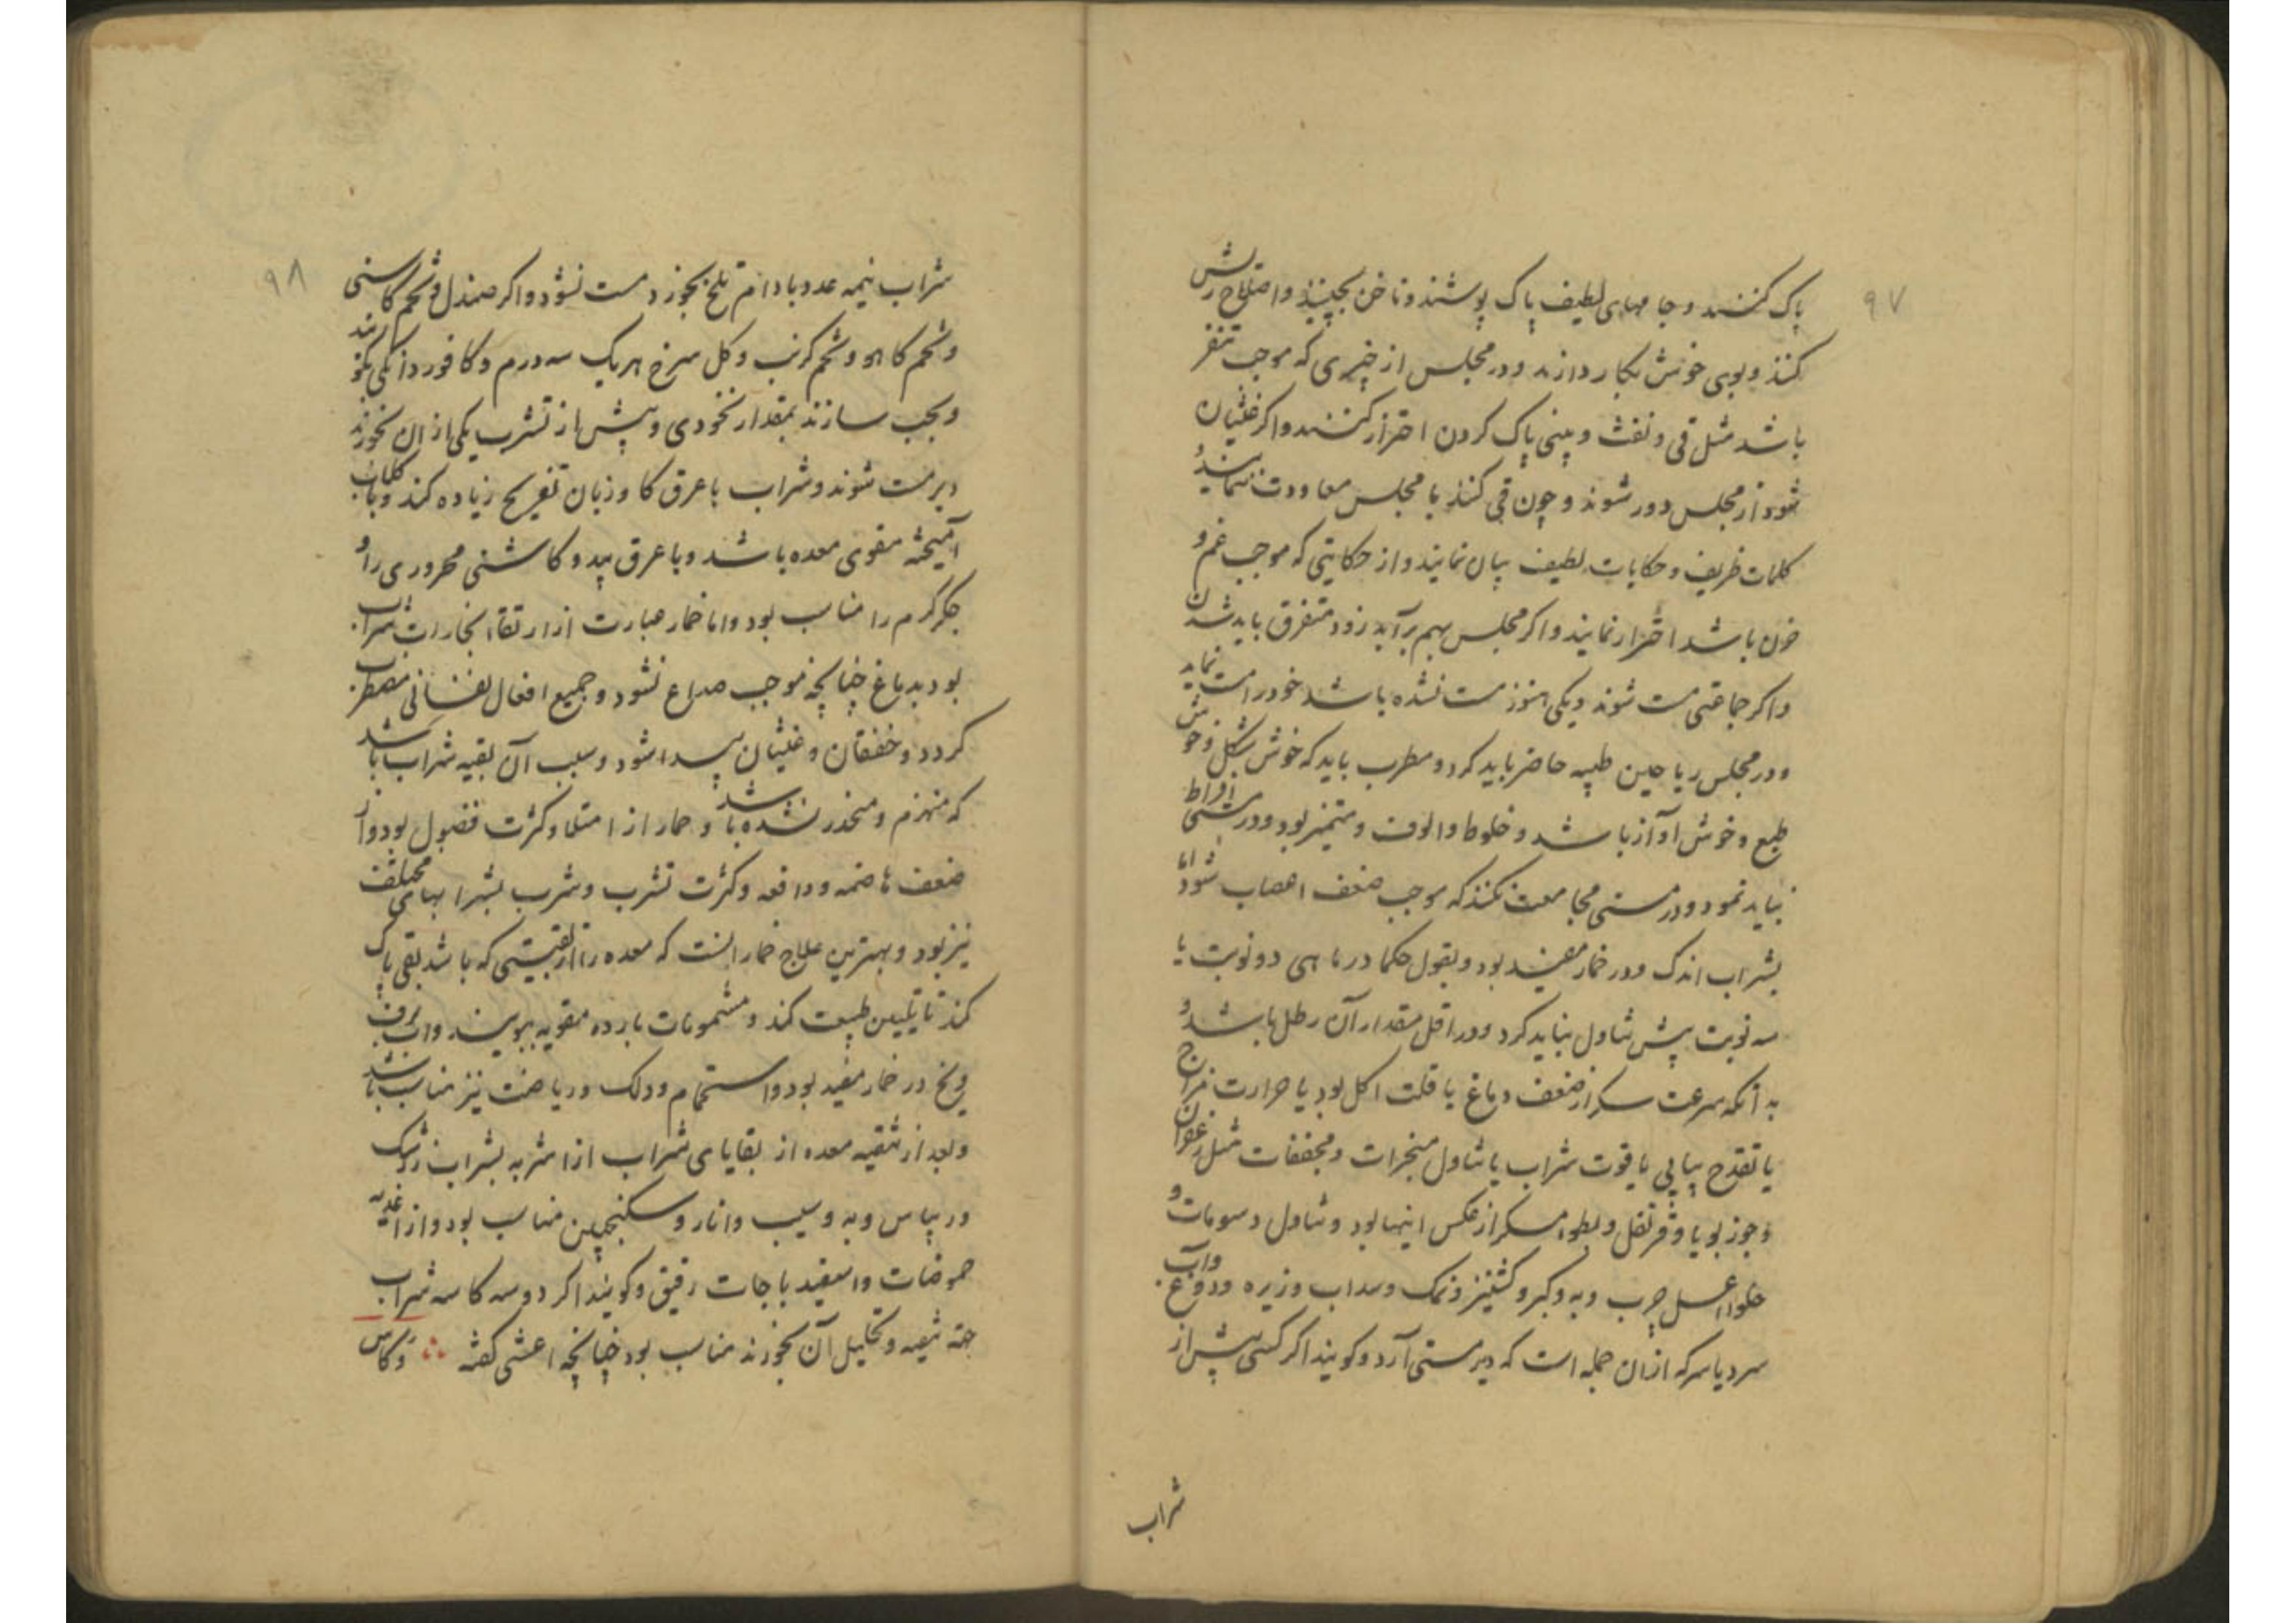 ۹۷
پاک کنند و جامهای لطیف پاک پوشند و ناخن بچینند و اصلاح ریش
کنند و بوی خوش بکار دارند و در مجلس از چیزی که موجب تنفر
باشد مثل قی و نفث و بینی پاک کردن احتراز کنند و اگر غثیان
شود از مجلس دور شوند و چون قی کنند با مجلس معاودت ننمایند و
کلمات ظریف و حکایات لطیف بیان نمایند و از حکایتی که موجب غم و
خون باشد احتراز نمایند و اگر مجلس بهم برآید زود متفرق باید شدن
و اگر جماعتی مست شوند و یکی هنوز مست نشده باشد خود را مست نماید
و در مجلس ریاحین طیبه حاضر باید کرد و مطرب باید که خوش شکل و خوش
طبع و خوش اواز باشد و خلوط و الوف و متمیز بود و در مستی افراط
نباید نمود و در مستی مجامعت نکنند که موجب ضعف اعصاب شود اما
بشراب اندک و در خمار مفید بود و بقول حکما در ماهی دو نوبت یا
سه نوبت بیش تناول نباید کرد و در اقل مقدار آن رطل باشد و
بدآنکه سرعت سکر از ضعف دماغ یا قلت اکل بود یا حرارت مزاج
یا تقدح پیاپی یا قوت شراب یا تناول مبخرات و مجففات مثل زعفران
و جوز بویا و قرنفل و بطوء سکر از عکس اینها بود و تناول دسومات و
حلوا عسل چرب و به و کبر و کشنیز و نمک و سداب و زیره و دوغ و آب
سرد یا سرکه ازان جمله است که دیر مستی آرد و کویند اگر کسی پیش از
شراب
۹۸
شراب نیمه عدد بادام تلخ بخورد مست نشود و اگر صندل و تخم کاسنی
و تخم کاهو و تخم کرنب و کل سرخ هر یک سه درم و کافور دانکی بکوبند
و بحب سازند بمقدار نخودی و پیش از تشرب یکی ازان بخورند
دیر مست شوند و شراب با عرق کاوزبان تفریح زیاده کند و با کلاب
آمیخته مقوی معده باشد و با عرق بید و کاسنی محروری را و
جکر کرم را مناسب بود و اما خمار عبارت از ارتقاء بخارات شراب
بود بدماغ چنانچه موجب صداع شود و جمیع افعال نفسانی مضطرب
کردد و خفقان و غثیان پیدا شود و سبب آن بقیه شراب باشد
که منهزم و منحدر نشده باشد و خمار از امتلا و کثرت فضول بود و از
ضعف هاضمه و دافعه و کثرت تشرب و شرب بشرابهای مختلف
نیز بود و بهترین علاج خمار انست که معده را از بقیتی که باشد بقی پاک
کند تا تلیین طبیعت کند و مشمومات بارده مقویه ببویند و اب برف
و یخ در خمار مفید بود و استحمام و دلک و ریاضت نیز مناسب باشد
و بعد از تنقیه معده از بقایای شراب از اشربه بشراب زرشک
و ریباس و به و سیب و انار و سکنجبین مناسب بود و از اغذیه
حموضات و اسفیدباجات رقیق و کویند اگر دو سه کاسه شراب
جهة تنقیه و تحلیل آن بخورند مناسب بود چنانچه اعشی گفته ∴ و کاس